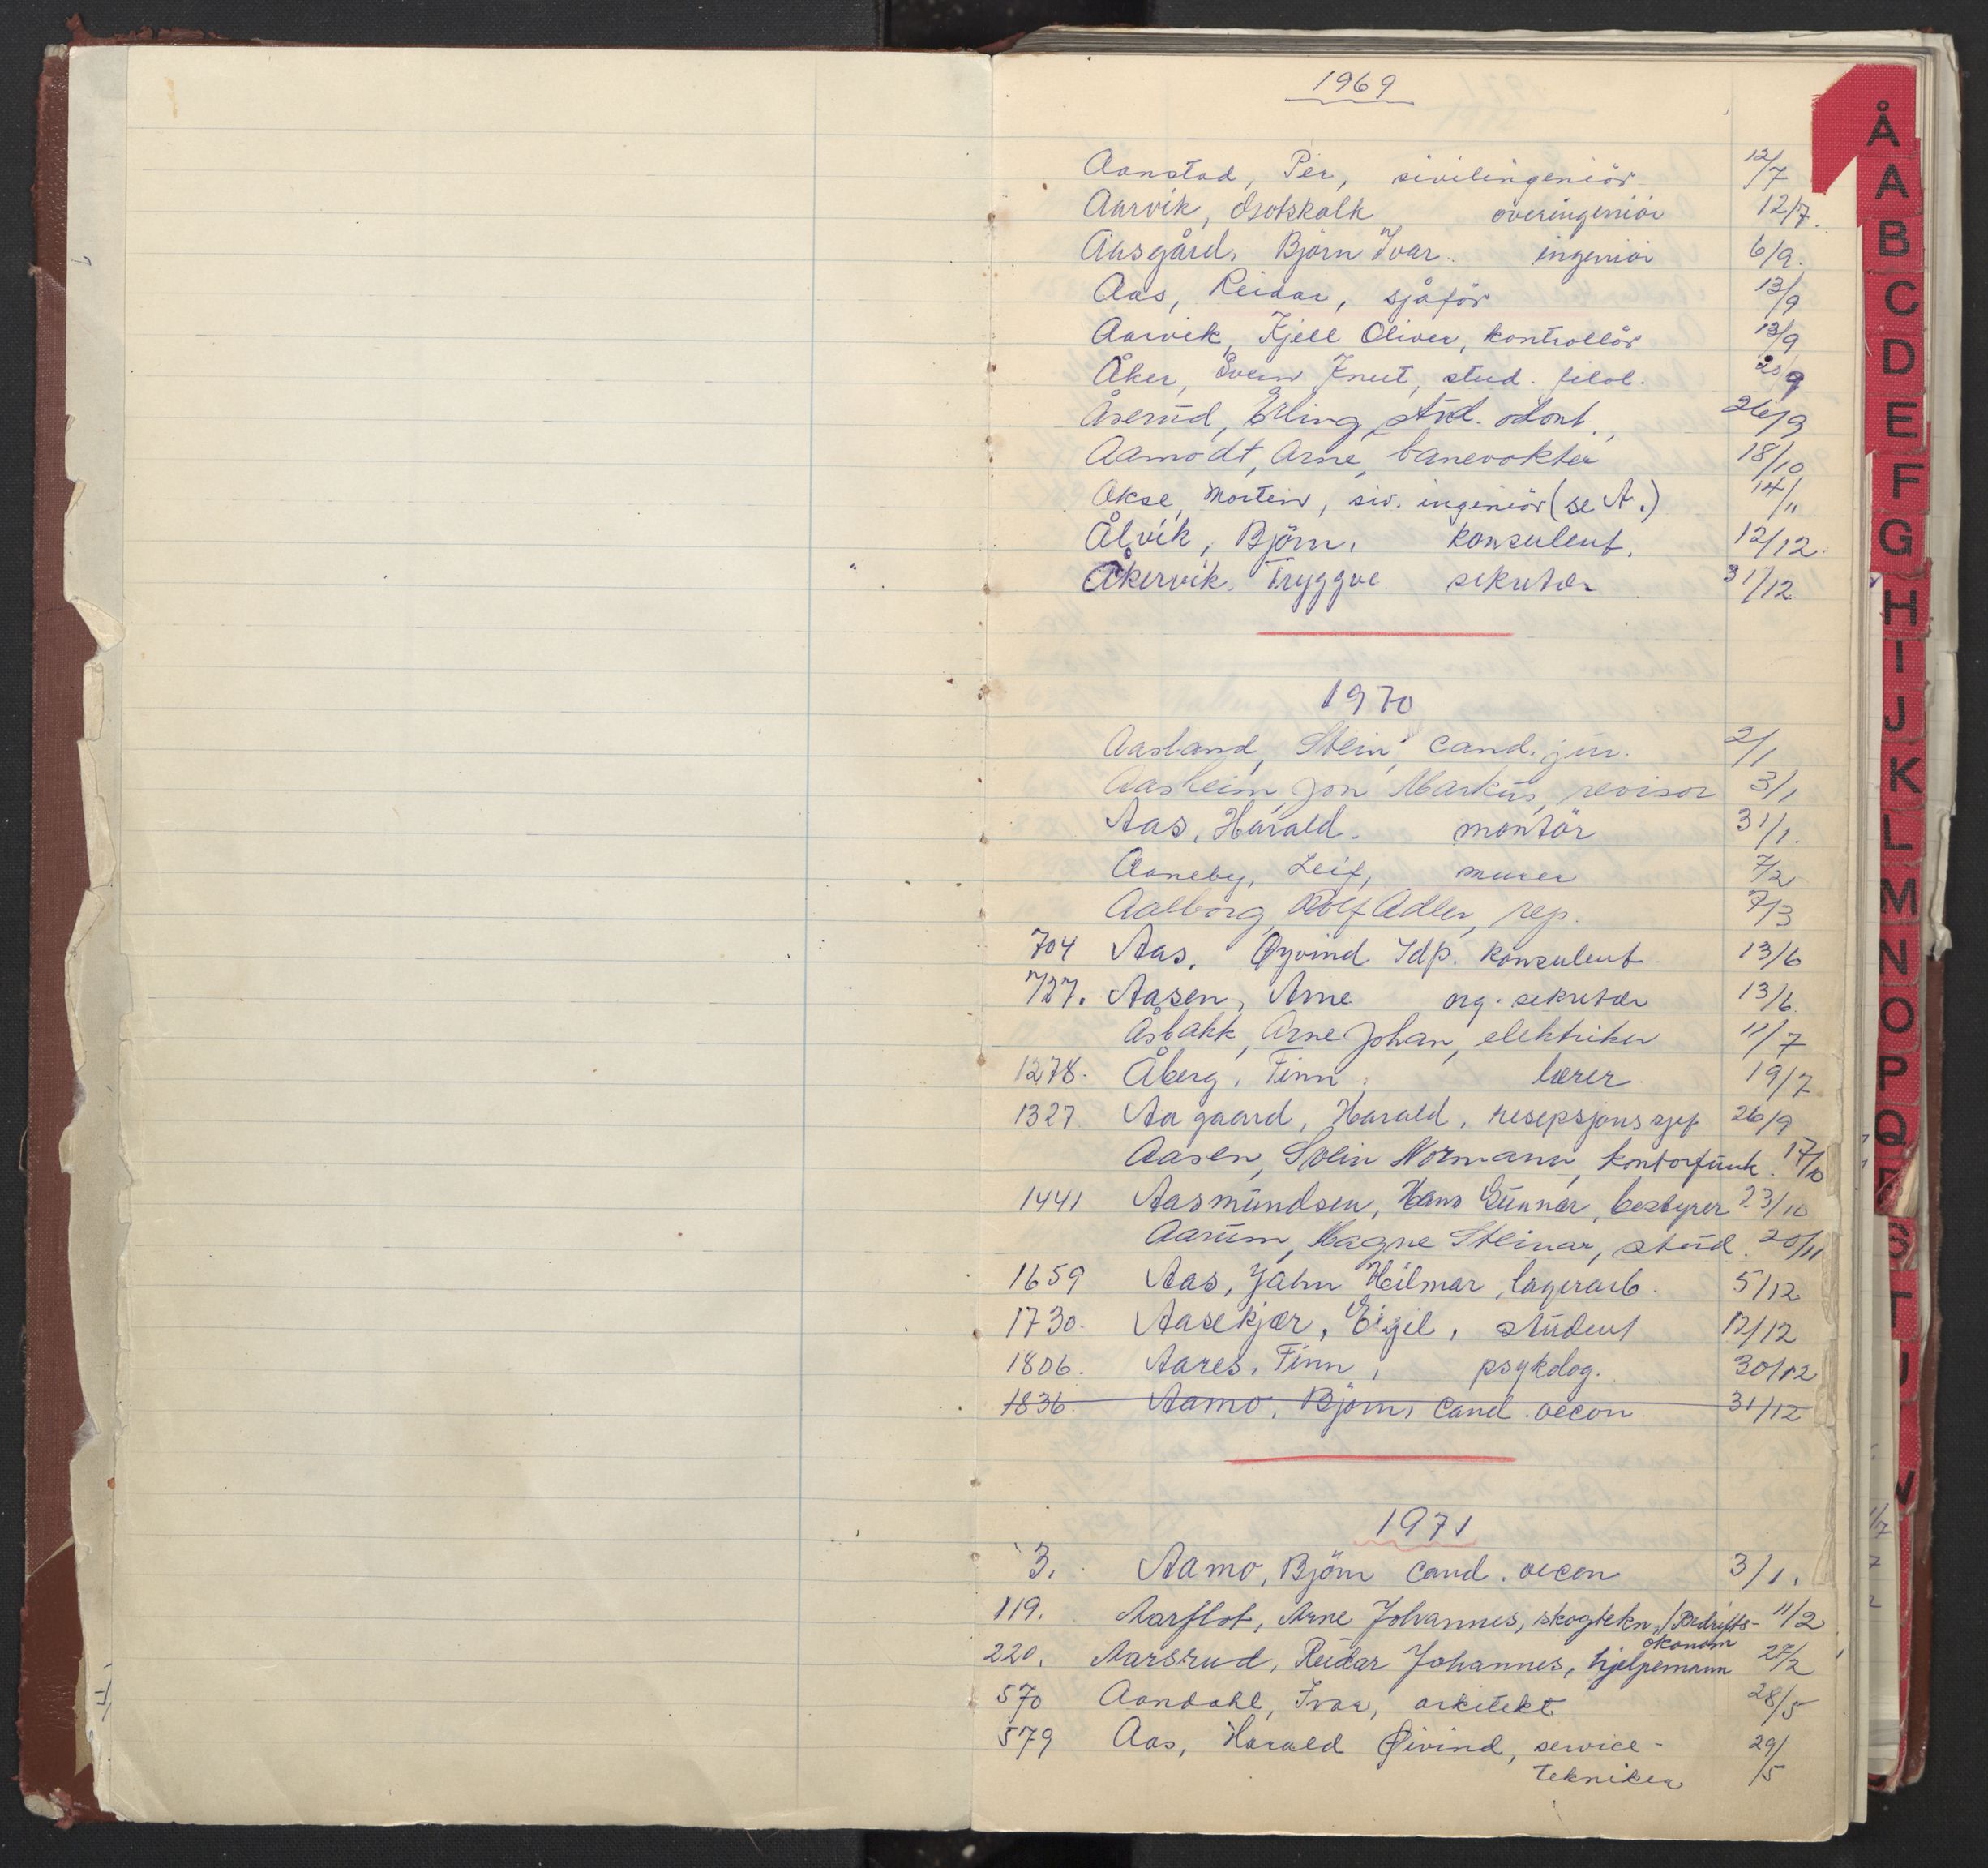 1969
Aanstad, Per, sivilingeniör 12/7
Aarvik, overingeniör 12/7.
Aasgård, Björn Ivar. ingeniör 6/9.
Aas, Reidar, sjåför 13/9
Aarvik, Kjell Oliver, kontrollör 13/9
Åker, Svein Knut, stud. filol. 20/9
Åserud, Erling, stud. odont., 26/9
Aamodt, Arne, banevokter 18/10
Økse, Morten, siv. ingeniör (se A.) 14/11
Ålvik, Björn, konsulent. 12/12.
Åkervik, Tryggve sekretær 31/12
1970
Aasland, Stein, cand. jur. 2/1
Aasheim, Jon Markus, revisor 3/1
Aas, Harald. montör 31/1.
Aaneby, Leif, murer 7/2
Aalborg, Rolf Adler, rep. 7/3
704 Aas, Øyvind Idp. konsulent 13/6
727. Aasen, Arne org. sekretær 13/6.
Åsbakk, Arne Johan, elektriker 11/7
1278. Åberg, Finn, lærer 19/7
1327 Aagaard, Harald, resepsjonssjef 26/9
Aasen, Svein Normann, kontorfunk. 17/10
1441 Aasmundsen, Hans Gunnar, bestyrer 23/10
Aarum, Magne Steinar, stud. 20/11
1659 Aas, Jahn Hilmar, lagerarb. 5/12
1730. Aasekjær, Eigil, student 12/12
1806. Aares, Finn, psykolog. 30/12
1836 Aamo, Björn, cand. oecon 31/12
1971
3. Aamo, Björn cand. oecon 3/1.
119. Aarflot, Arne Johannes, skogtekn./Bedrifts- 11/2
økonom
220. Aarsrud, Reidar Johannes, hjelpemann 27/2
570 Aandahl, Ivar, arkitekt 28/5
579 Aas, Harald Øivind, service- 29/5
tekniker
Å
A
B
C
D
E
F
G
H
I
J
K
L
M
N
O
P
Q
S
T